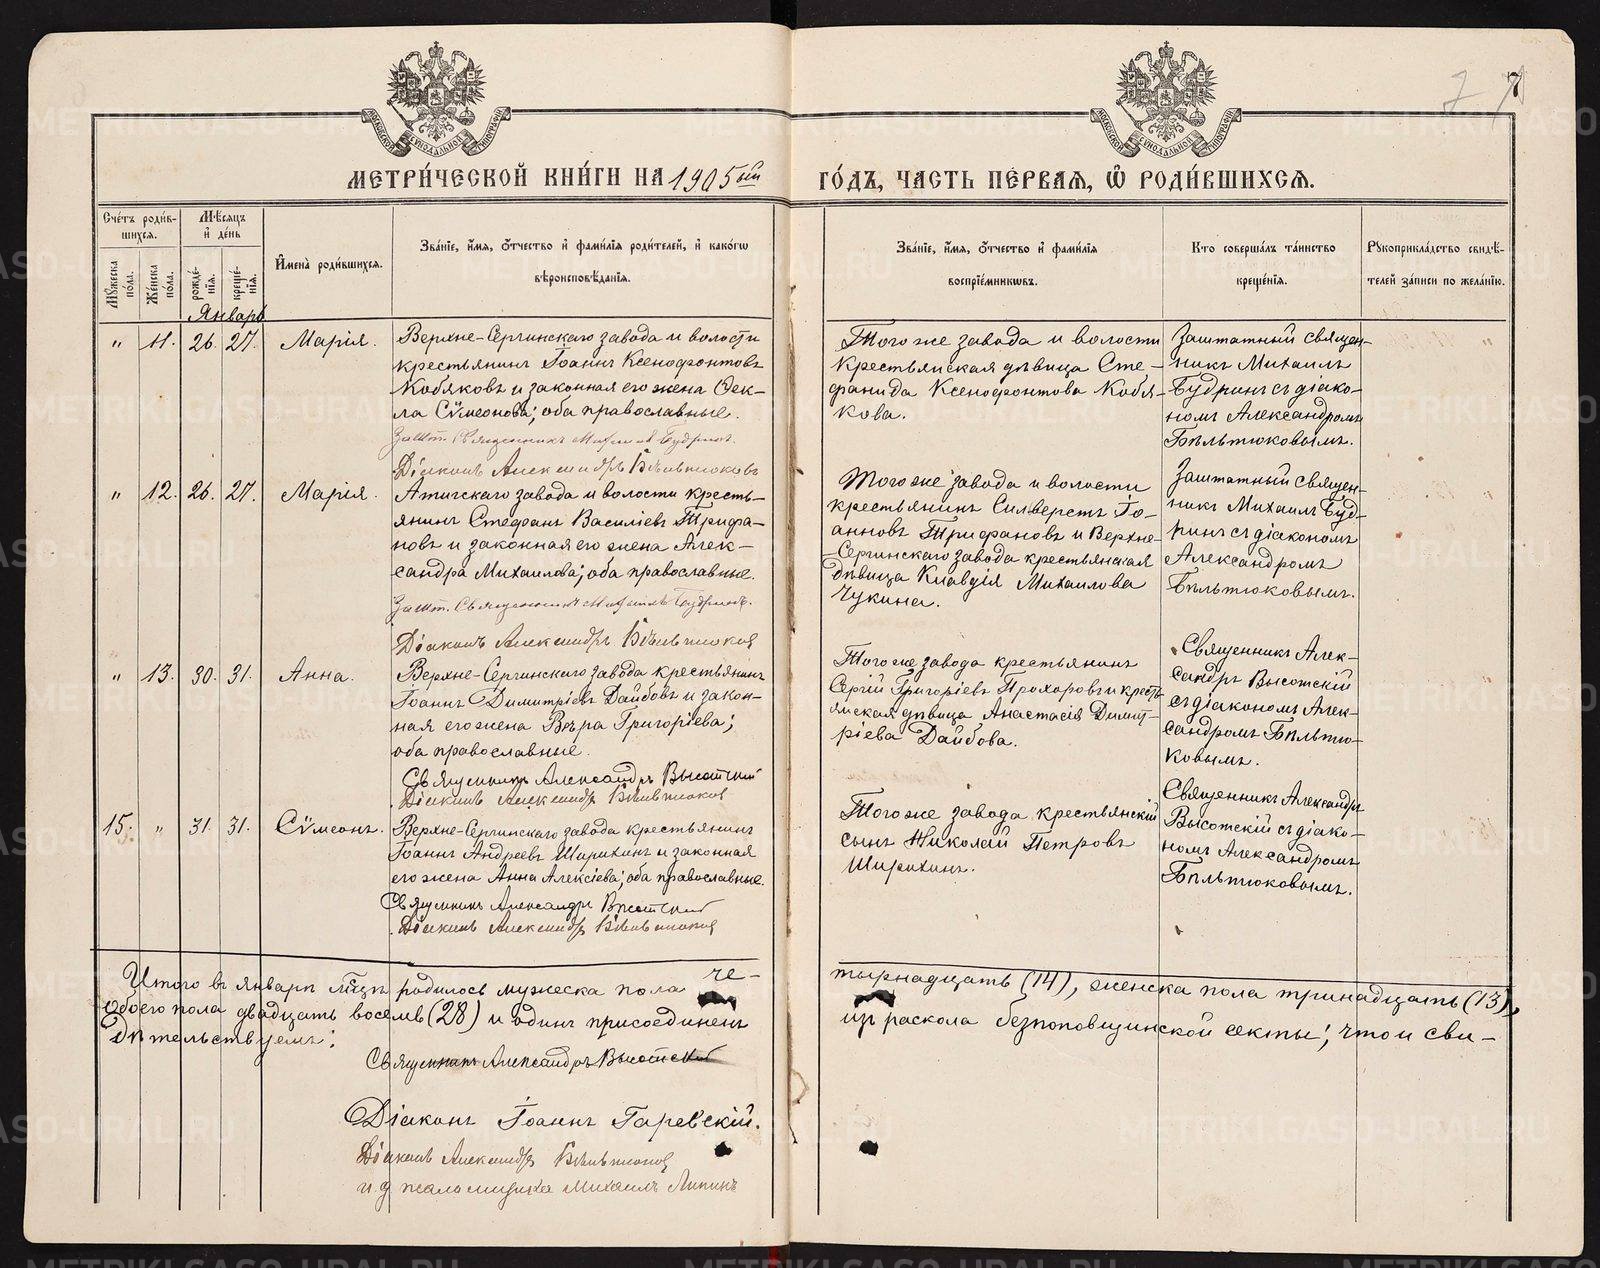 МЕТРИ́ЧЕСКОЙ КНИ́ГИ НА 1905ый ГО́ДЪ, ЧАСТЬ ПЕ́РВАЯ, Ѽ РОДИ́ВШИХСЯ.
7 7
Сче́тъ роди́в-
шихся.
Мѣ́сяцъ
и де́нь
Мꙋжеска по́ла.
Же́нска по́ла.
рожде́-
нія.
креще́-
нія.
И҆мена̀ роди́вшихся.
Зва́ніе, и҆́мя, ѻ҆́тчество и҆ фами́лія роди́телей, и҆ како́гѡ
вѣроисповѣ́данія.
Зва́ніе, и҆́мя, ѻ҆́тчество и҆ фами́лія
воспріе́мникѡвъ.
Кто соверша́лъ та́инство
креще́нія.
Рꙋкоприкла́дство свидѣ́-
телей за́писи по жела́нію.
Январь
" 11. 26. 27. Марія.
Верхне-Сергинскаго завода и волости
крестьянинъ Іоаннъ Ксенофонтовъ
Кобяковъ и законная его жена Ѳек-
ла Сѵмеонова; оба православные.
Зашт. Священникъ Михаилъ Будринъ.
Діаконъ Александръ Бѣльтюковъ
Того же завода и волости
крестьянская дѣвица Сте-
фанида Ксенофонтова Кобя-
кова.
Заштатный священ-
никъ Михаилъ
Будринъ съ діако-
номъ Александромъ
Бѣльтюковымъ.
" 12. 26. 27. Марія.
Атигскаго завода и волости кресть-
янинъ Стефанъ Василіевъ Трифа-
новъ и законная его жена Алек-
сандра Михаилова; оба православные.
Зашт. Священникъ Михаилъ Будринъ.
Діаконъ Александръ Бѣльтюковъ
Того же завода и волости
крестьянинъ Силверстъ Іо-
анновъ Трифановъ и Верхне-
-Сергинскаго завода крестьянская
дѣвица Клавдія Михаилова
Чукина.
Заштатный священ-
никъ Михаилъ Буд-
ринъ съ діакономъ
Александромъ
Бѣльтюковымъ.
" 13. 30. 31. Анна.
Верхне-Сергинскаго завода крестьянинъ
Іоаннъ Димитріевъ Дайбовъ и закон-
ная его жена Вѣра Григоріева;
оба православные.
Священникъ Александръ Высотскій
Діаконъ Александръ Бѣльтюковъ
Того же завода крестьянинъ
Сергій Григоріевъ Прохоровъ и кресть-
янская дѣвица Анастасія Димит-
ріева Дайбова.
Священникъ Алек-
сандръ Высотскій
съ діакономъ Алек-
сандромъ Бѣльтю-
ковымъ.
15. " 31. 31. Сѵмеонъ.
Верхне-Сергинскаго завода крестьянинъ
Іоаннъ Андреевъ Ширихинъ и законная
его жена Анна Алексіева; оба православные.
Священникъ Александръ Высотскій
Діаконъ Александръ Бѣльтюковъ
Того же завода крестьянскій
сынъ Николай Петровъ
Ширихинъ.
Священникъ Александръ
Высотскій съ діако-
номъ Александромъ
Бѣльтюковымъ.
Итого въ январѣ мѣсцѣ родилось мужеска пола че-
тырнадцать (14), женска пола тринадцать (13),
обоего пола двадцать восемь (28) и одинъ присоединенъ
изъ раскола безпоповщинской секты; что и сви-
дѣтельствуемъ:
Священникъ Александръ Высотскій
Діаконъ Іоаннъ Гаревскій.
Діаконъ Александръ Бѣльтюковъ
и. д. псаломщика Михаилъ Липинъ